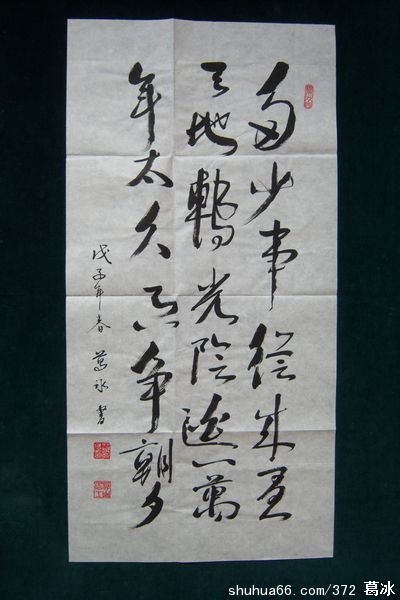 多少事從来急
天地轉光陰迫一萬
年太久只争朝夕
戊子年春 葛冰書
shuhua66.com/372 葛冰